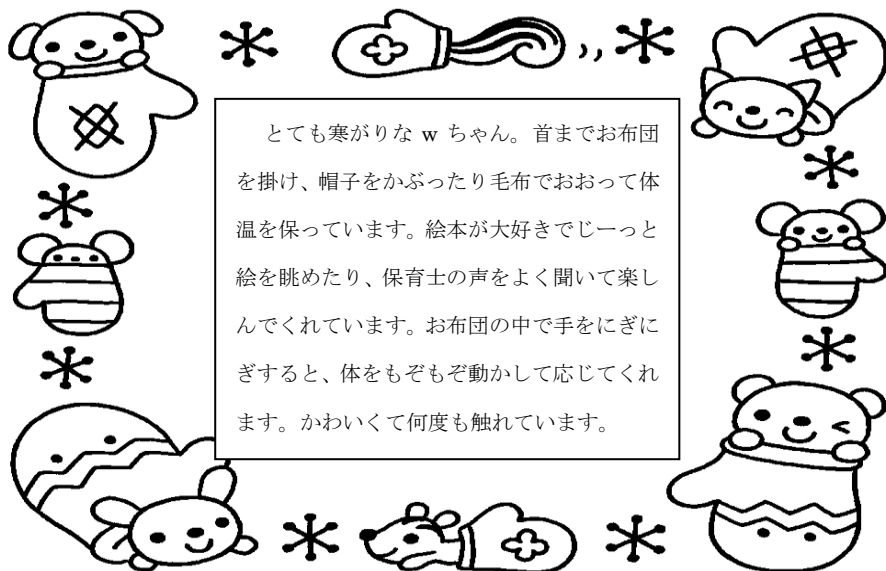 とても寒がりな w ちゃん。首までお布団
を掛け、帽子をかぶったり毛布でおおって体
温を保っています。絵本が大好きでじーっと
絵を眺めたり、保育士の声をよく聞いて楽し
んでくれています。お布団の中で手をにぎに
ぎすると、体をもぞもぞ動かして応じてくれ
ます。かわいくて何度も触れています。